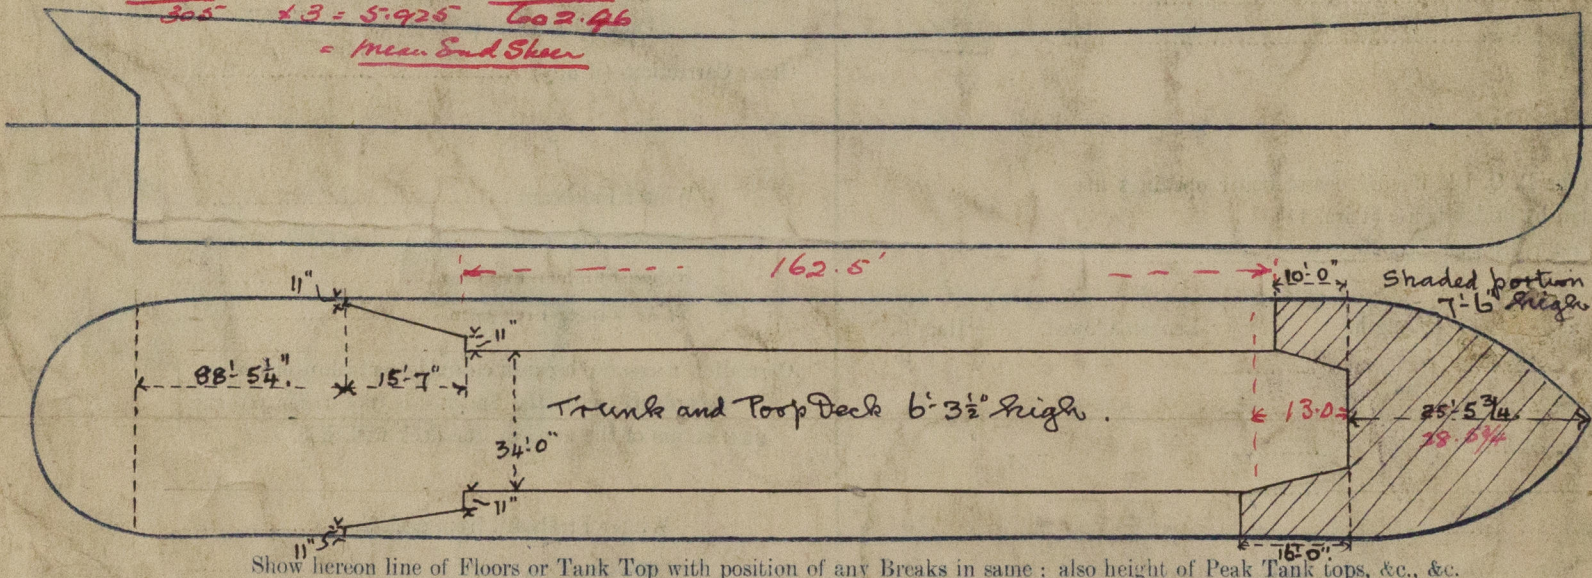 305 x 3 = 5.925 602.96
= Mean End Sheer
162.5'
11"
10'-0"
Shaded portion
7'-6" high
11"
88'-5¼".
15'-7"
Trunk and Poop Deck 6'-3½" high.
13.0
25'-5¾".
28.5¾
34'-0"
11"
11"
16'-0".
Show hereon line of Floors or Tank Top with position of any Breaks in same ; also height of Peak Tank tops, &c., &c.